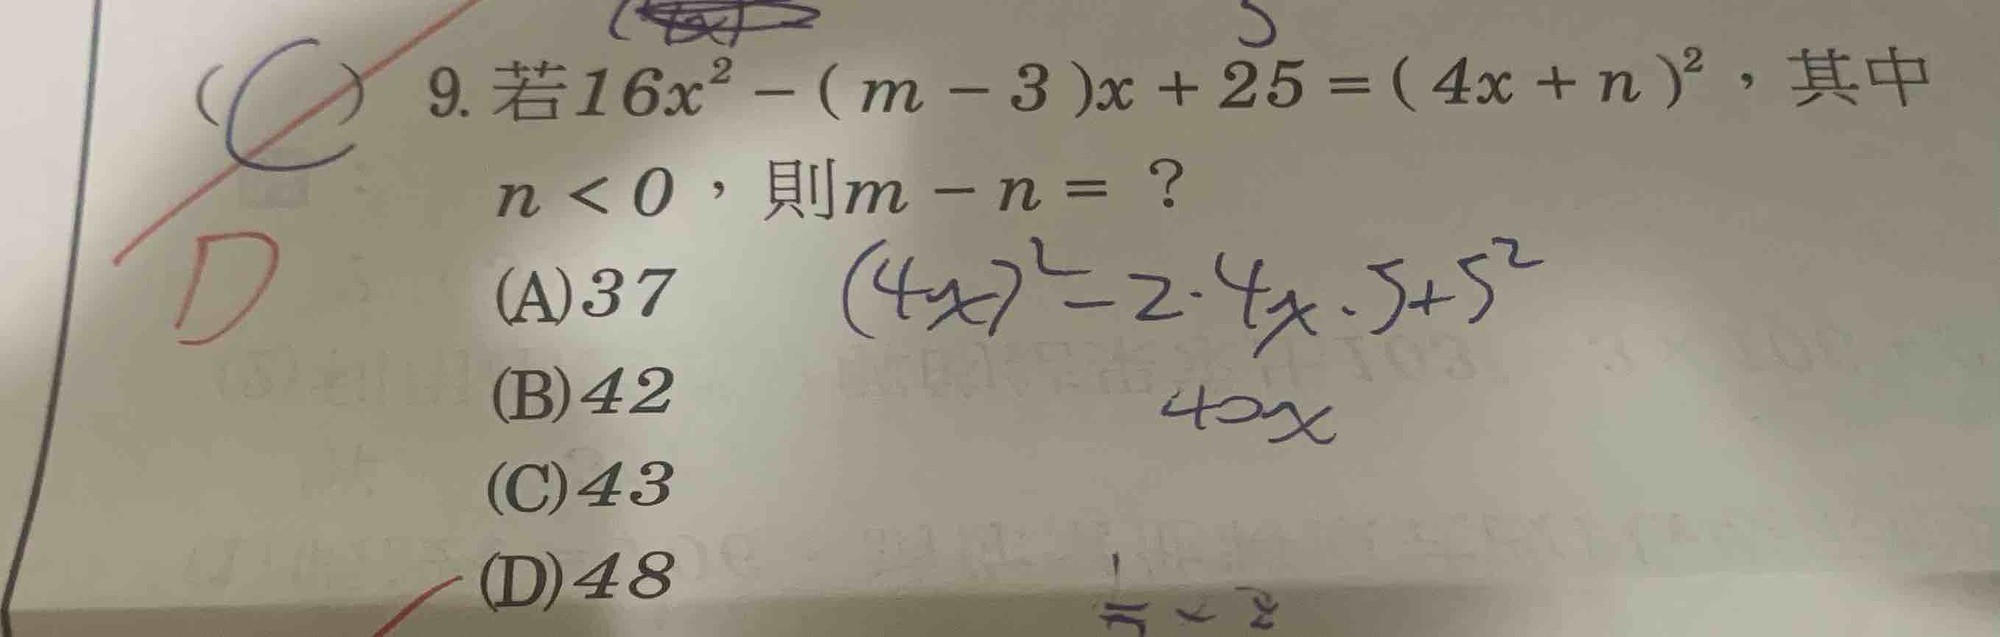 5
(C) 9. 若16x² − ( m − 3 )x + 25 = ( 4x + n )²，其中
n < 0，則m − n = ？
D
(A)37
(4x)² − 2·4x·5+5²
(B)42
40x
(C)43
(D)48